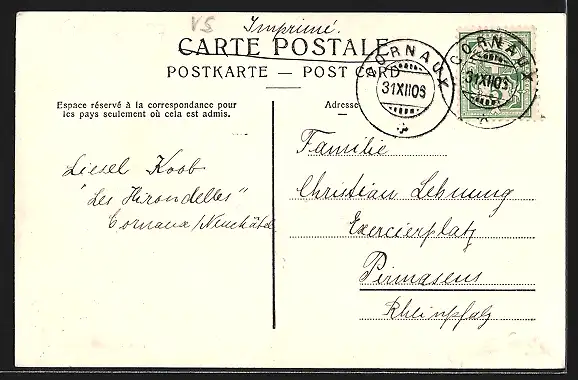 V5
Imprimé.
CARTE POSTALE
POSTKARTE — POST CARD
CORNAUX
31XII06
CORNAUX
31XII06
5
Espace réservé à la correspondance pour
les pays seulement où cela est admis.
Adresse
Liesel Koob
"Les Hirondelles"
Cornaux/Neuchâtel
Familie
Christian Lehnung
Exercierplatz
Pirmasens
Rheinpfalz